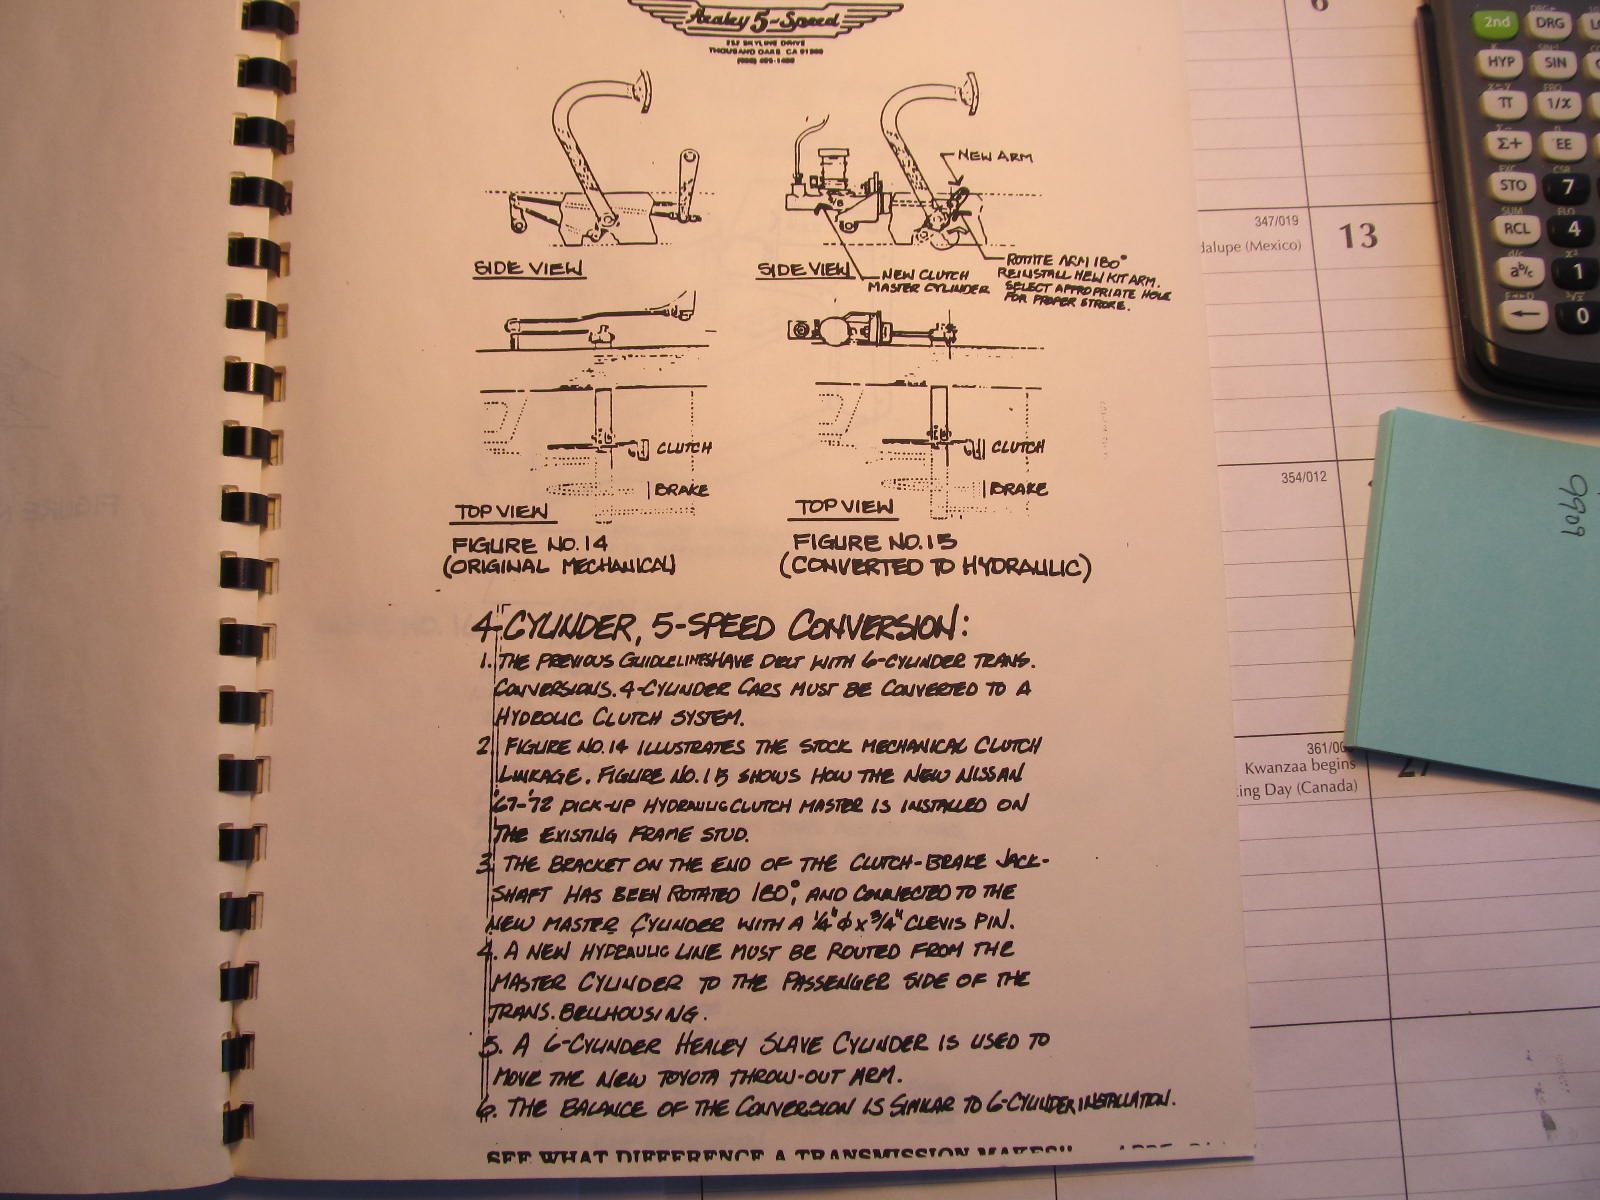 Healey 5-Speed
SKYLINE DRIVE
THOUSAND OAKS CA
NEW ARM
SIDE VIEW
SIDE VIEW
NEW CLUTCH
MASTER CYLINDER
ROTATE ARM 180°
REINSTALL NEW KIT ARM.
SELECT APPROPRIATE HOLE
FOR PROPER STROKE.
CLUTCH
BRAKE
TOP VIEW
CLUTCH
BRAKE
TOP VIEW
FIGURE NO.14
(ORIGINAL MECHANICAL)
FIGURE NO.15
(CONVERTED TO HYDRAULIC)
4-CYLINDER, 5-SPEED CONVERSION:
1. THE PREVIOUS GUIDELINES HAVE DELT WITH 6-CYLINDER TRANS.
CONVERSIONS. 4-CYLINDER CARS MUST BE CONVERTED TO A
HYDROLIC CLUTCH SYSTEM.
2. FIGURE NO.14 ILLUSTRATES THE STOCK MECHANICAL CLUTCH
LINKAGE. FIGURE NO.15 SHOWS HOW THE NEW NISSAN
'67-'72 PICK-UP HYDRAULIC CLUTCH MASTER IS INSTALLED ON
THE EXISTING FRAME STUD.
3. THE BRACKET ON THE END OF THE CLUTCH-BRAKE JACK-
SHAFT HAS BEEN ROTATED 180°, AND CONNECTED TO THE
NEW MASTER CYLINDER WITH A 1/4"ϕ x 3/4" CLEVIS PIN.
4. A NEW HYDRAULIC LINE MUST BE ROUTED FROM THE
MASTER CYLINDER TO THE PASSENGER SIDE OF THE
TRANS. BELLHOUSING.
5. A 6-CYLINDER HEALEY SLAVE CYLINDER IS USED TO
MOVE THE NEW TOYOTA THROW-OUT ARM.
6. THE BALANCE OF THE CONVERSION IS SIMILAR TO 6-CYLINDER INSTALLATION.
SEE WHAT DIFFERENCE A TRANSMISSION MAKES!!
6
347/019
13
dalupe (Mexico)
354/012
361/00
Kwanzaa begins
27
ing Day (Canada)
9909
2nd
DRG
HYP
SIN
π
1/x
Σ+
EE
STO
7
RCL
4
ab/c
1
←
0